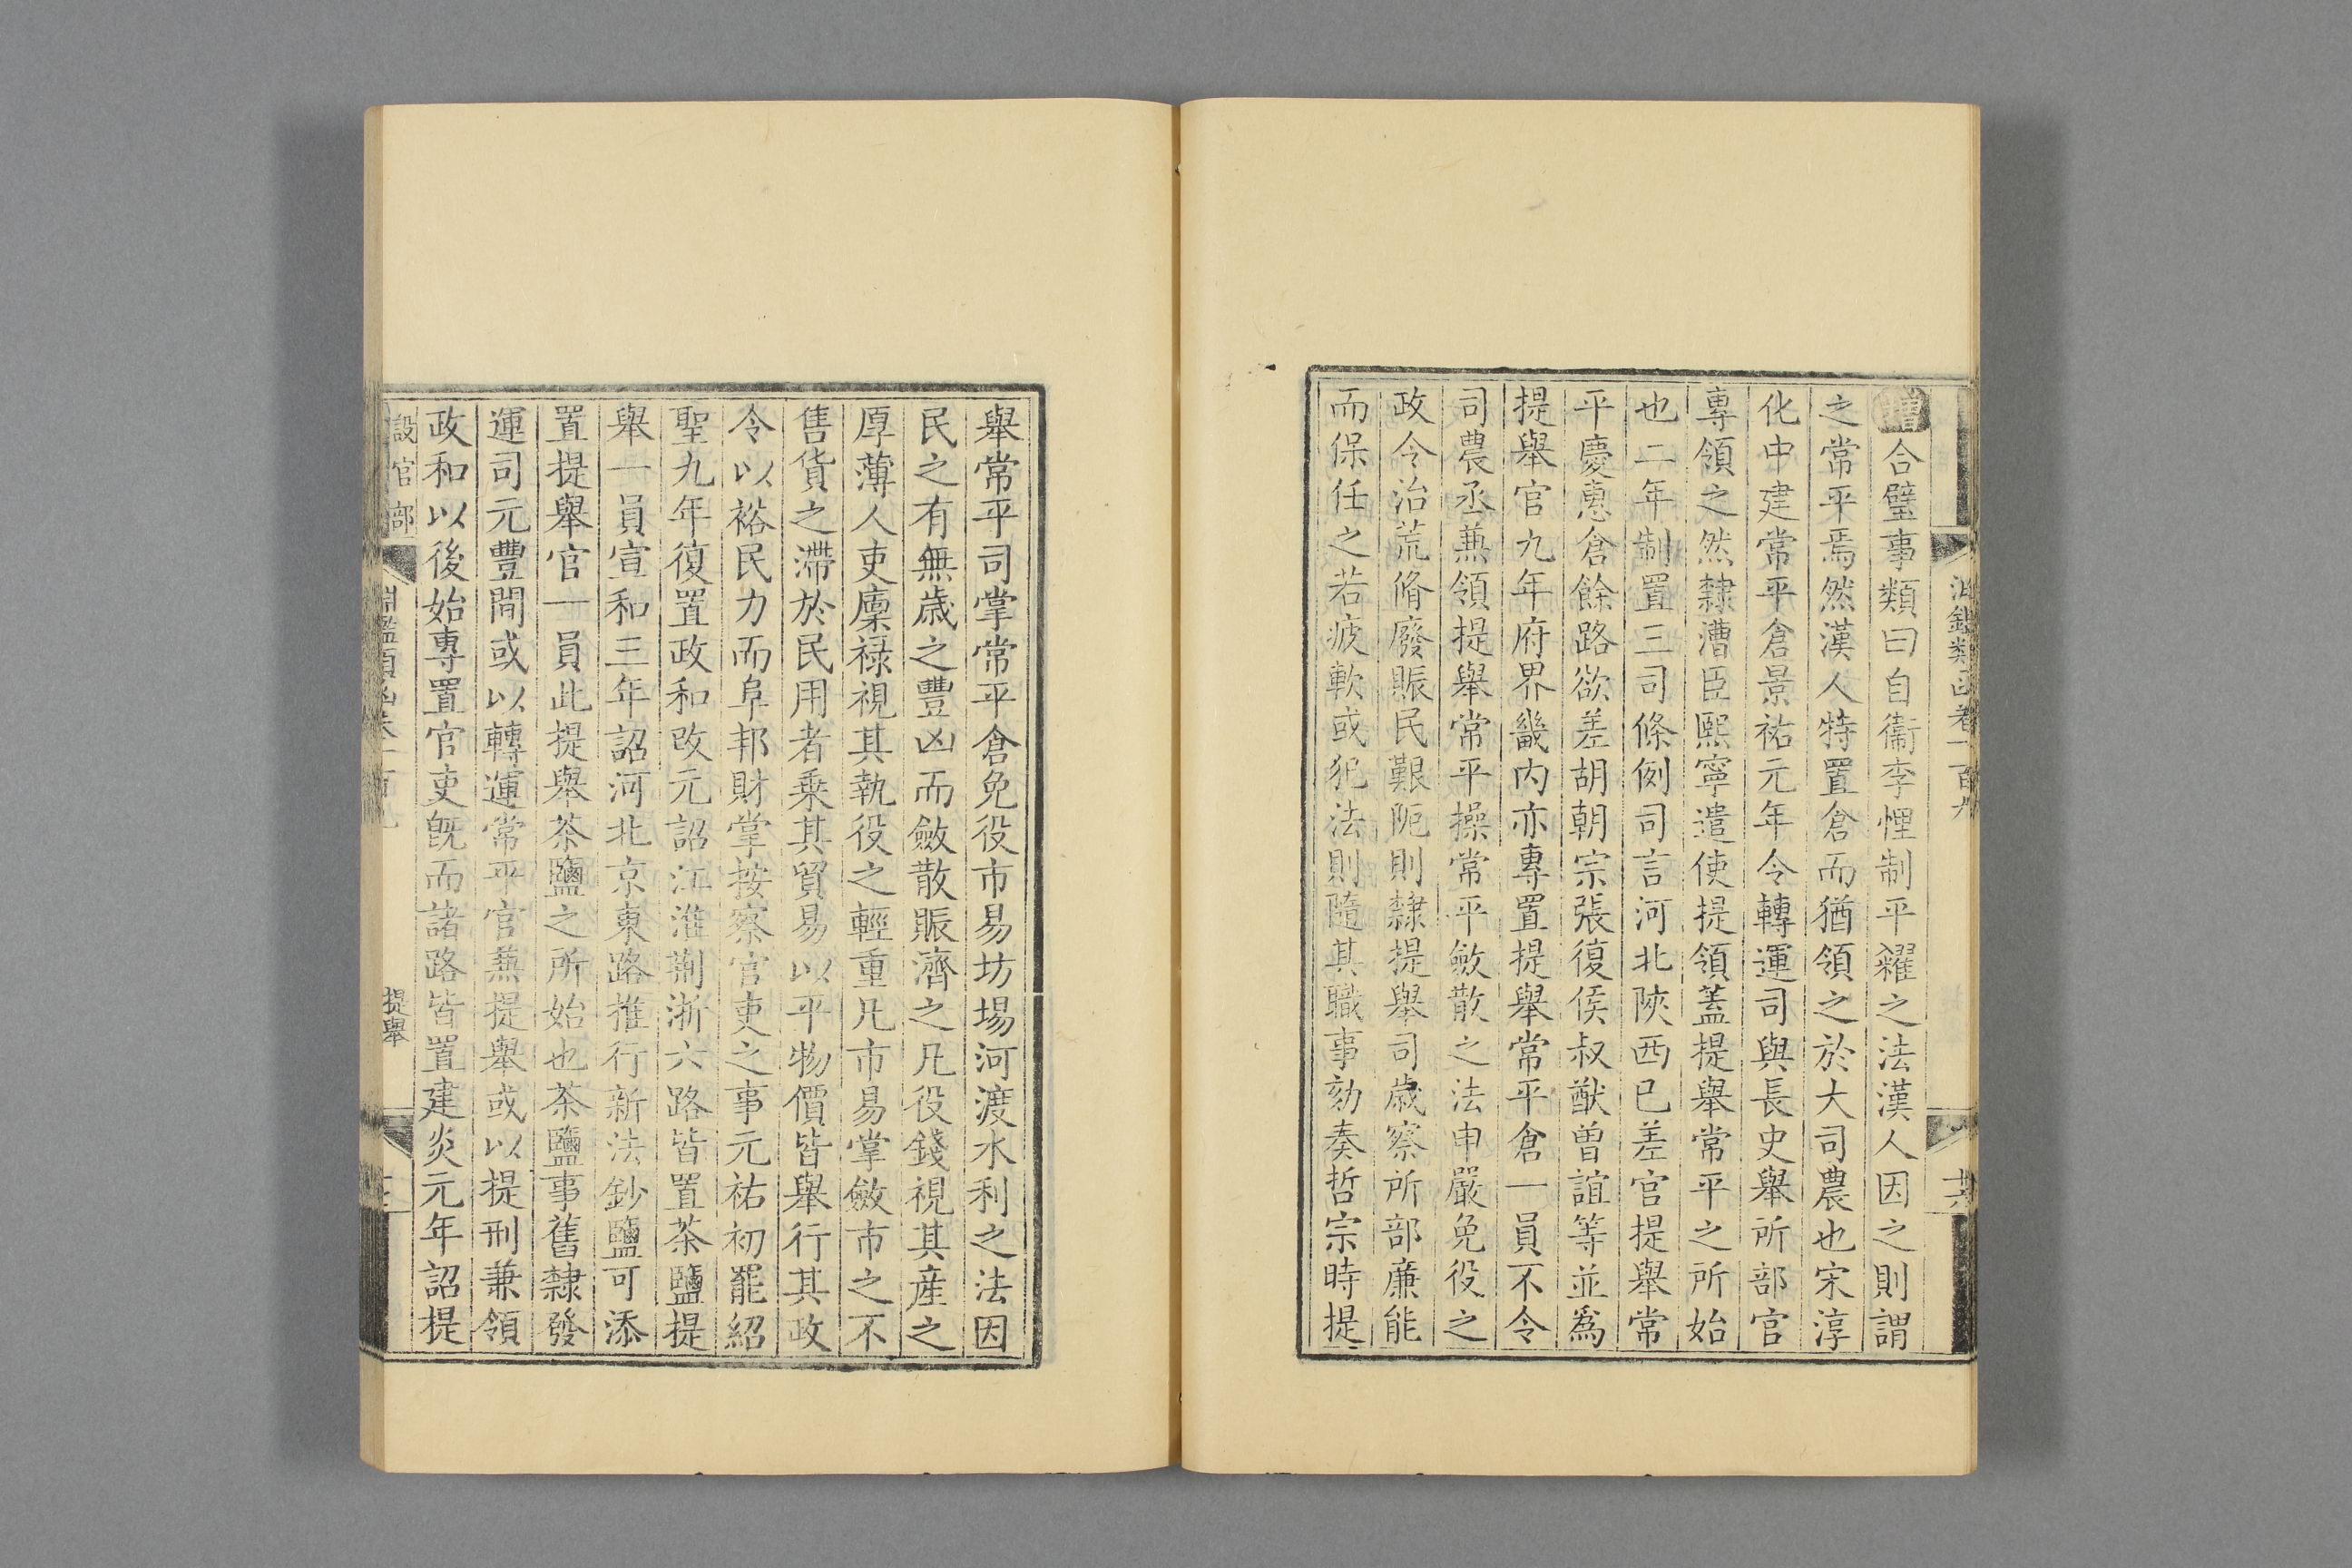 淵鑑類函卷一百九
十六
增合璧事類曰自衞李悝制平糴之法漢人因之則謂
之常平焉然漢人特置倉而猶領之於大司農也宋淳
化中建常平倉景祐元年令轉運司與長史舉所部官
專領之然隸漕臣熙寧遣使提領蓋提舉常平之所始
也二年制置三司條例司言河北陝西已差官提舉常
平慶惠倉餘路欲差胡朝宗張復侯叔猷曾誼等並爲
提舉官九年府界畿内亦專置提舉常平倉一員不令
司農丞兼領提舉常平操常平斂散之法申嚴免役之
政令治荒脩廢賑民艱阨則隸提舉司歲察所部廉能
而保任之若疲軟或犯法則隨其職事劾奏哲宗時提
舉常平司掌常平倉免役市易坊場河渡水利之法因
民之有無歲之豐凶而斂散賑濟之凡役錢視其産之
厚薄人吏廩祿視其執役之輕重凡市易掌斂市之不
售貨之滯於民用者乗其貿易以平物價皆舉行其政
令以裕民力而阜邦財掌按察官吏之事元祐初罷紹
聖九年復置政和改元詔江淮荆浙六路皆置茶鹽提
舉一員宣和三年詔河北京東路推行新法鈔鹽可添
置提舉官一員此提舉茶鹽之所始也茶鹽事舊隸發
運司元豐間或以轉運常平官兼提舉或以提刑兼領
政和以後始專置官吏旣而諸路皆置建炎元年詔提
設官部
淵鑑類函卷一百九
提舉